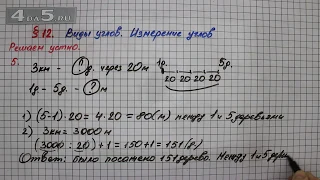 4 Д 5.RU
§ 12. Виды углов. Измерение углов
Решаем устно.
5. 3км – ? д. через 20м
1д. – 5д. – ? м
1д. 5д.
20 20 20 20
1) (5-1)·20 = 4·20 = 80(м) между 1 и 5 деревьями
2) 3км = 3000м
(3000 : 20)+1 = 150+1 = 151(д)
Ответ: было посажено 151 дерево. Между 1 и 5 дере